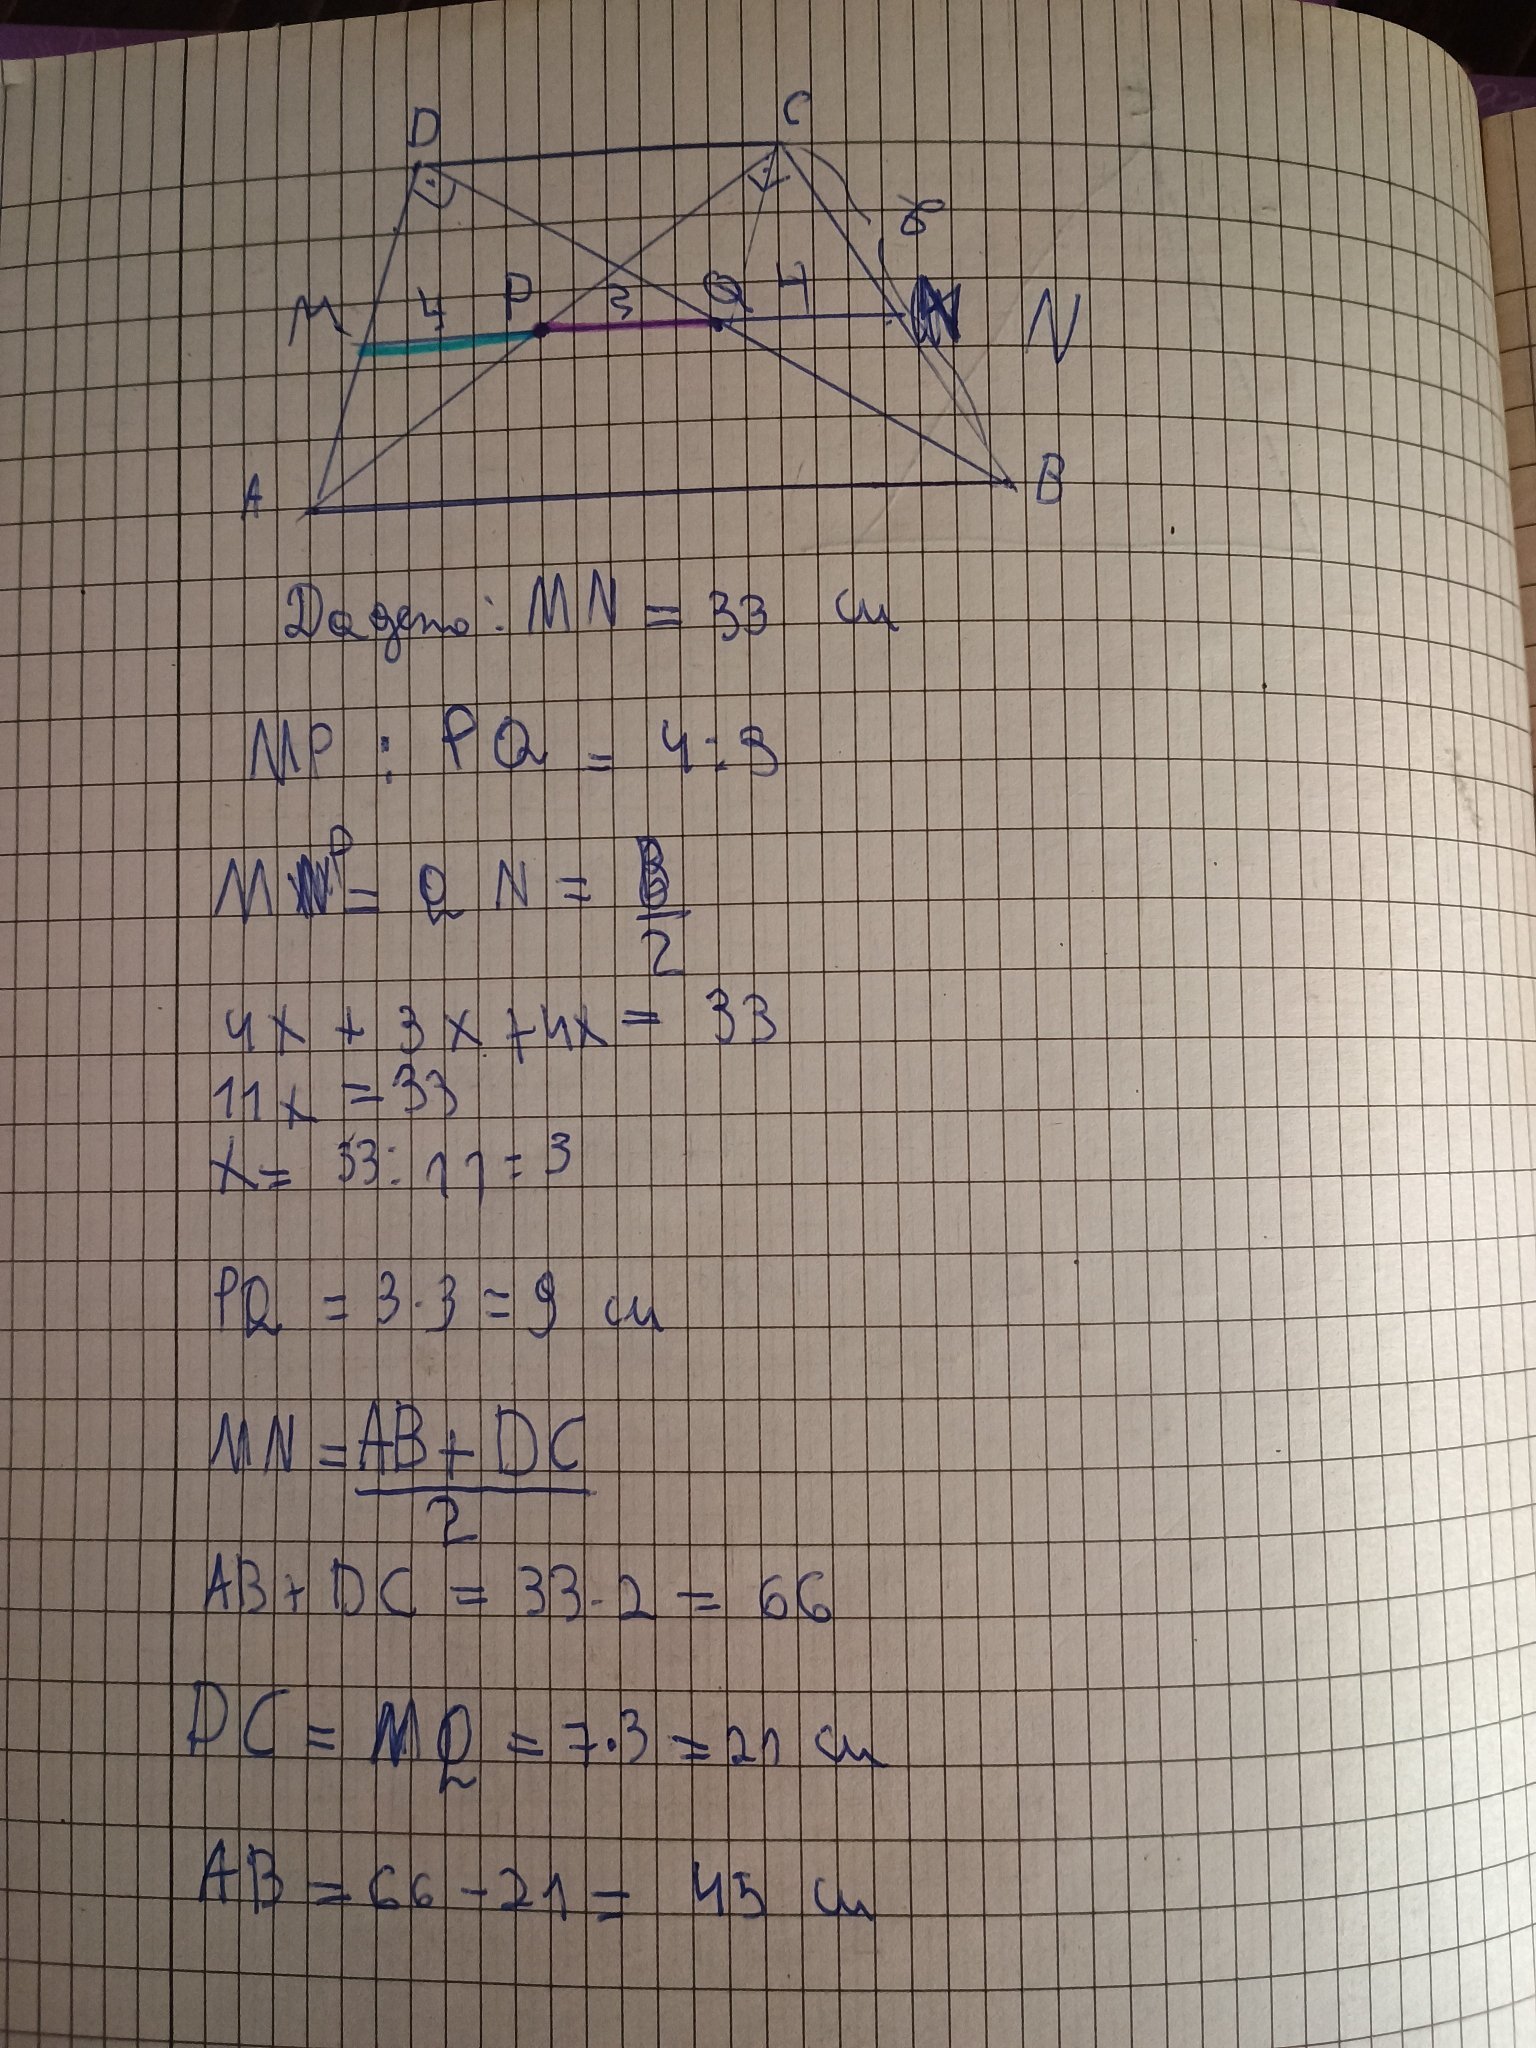 D C
8
M 4 P 3 Q 4 N
A B
Дадено: MN = 33 см
MP : PQ = 4:3
MP = QN = B/2
4x + 3x + 4x = 33
11x = 33
x = 33:11 = 3
PQ = 3.3 = 9 см
MN = AB + DC
2
AB + DC = 33.2 = 66
DC = MQ = 7.3 = 21 см
AB = 66 - 21 = 45 см